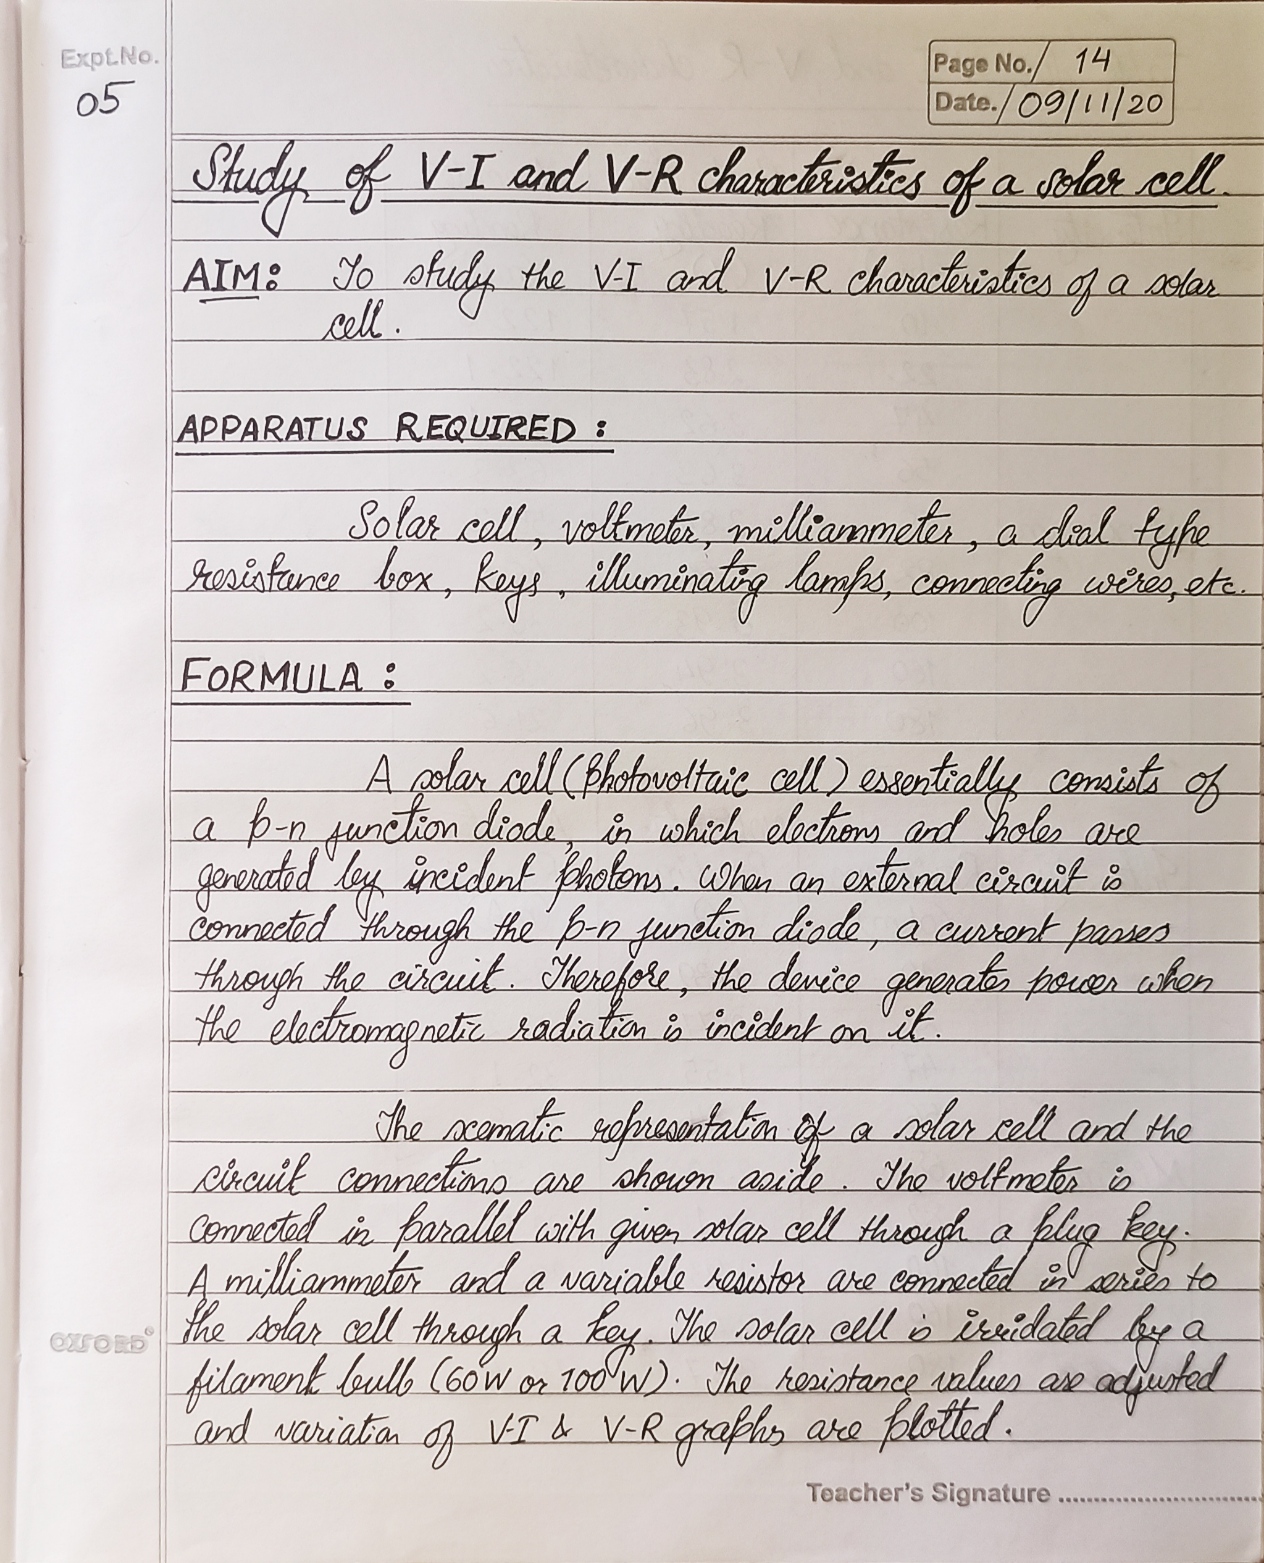 Expt.No.
05
Page No. 14
Date. 09/11/20
Study of V-I and V-R characteristics of a solar cell.
AIM: To study the V-I and V-R characteristics of a solar
cell.
APPARATUS REQUIRED :
Solar cell, voltmeter, milliammeter, a dial type
resistance box, keys, illuminating lamps, connecting wires, etc.
FORMULA :
A solar cell (photovoltaic cell) essentially consists of
a p-n junction diode, in which electrons and holes are
generated by incident photons. When an external circuit is
connected through the p-n junction diode, a current passes
through the circuit. Therefore, the device generates power when
the electromagnetic radiation is incident on it.
The scematic representation of a solar cell and the
circuit connections are shown aside. The voltmeter is
connected in parallel with given solar cell through a plug key.
A milliammeter and a variable resistor are connected in series to
the solar cell through a key. The solar cell is irridated by a
filament bulb (60W or 100W). The resistance values are adjusted
and variation of V-I & V-R graphs are plotted.
OXFORD
Teacher's Signature